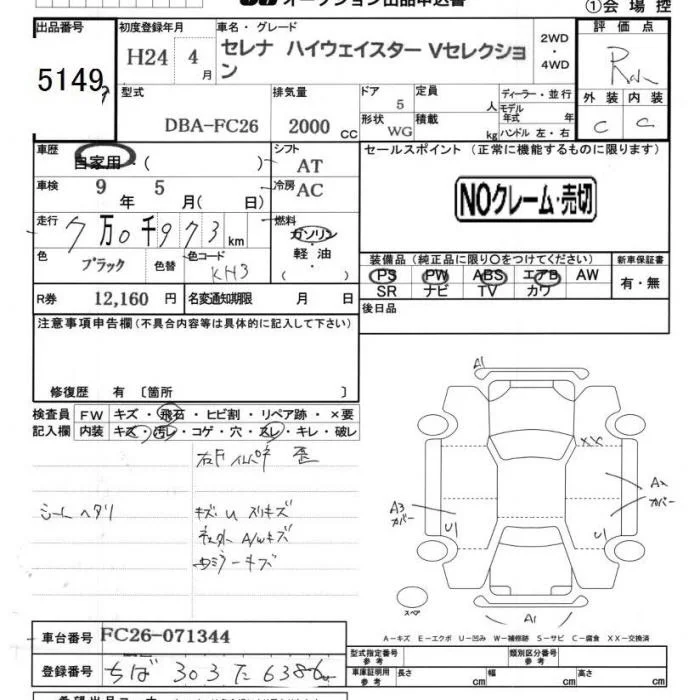 オークション出品申込書
①会場控
出品番号
5149
初度登録年月
H24 4月
車名・グレード
セレナ ハイウェイスター Vセレクション
2WD
・
4WD
評価点
外装 内装
C C
型式
DBA-FC26
排気量
2000 CC
ドア
5
形状
WG
定員
人
積載
kg
ディーラー・並行
モデル
年式 年
ハンドル 左・右
車歴
自家用・( )
シフト
AT
車検
9年 5月( 日)
冷房
AC
走行
7万0千973km
燃料
ガソリン
・
軽油
・
( )
色
ブラック
色替
色コード
KH3
R券 12,160 円
名変通知期限 月 日
セールスポイント(正常に機能するものに限ります)
NOクレーム・売切
装備品(純正品に限り○をつけてください)
PS PW ABS エアB AW
SR ナビ TV カワ
新車保証書
有・無
後日品
注意事項申告欄(不具合内容等は具体的に記入して下さい)
修復歴 有 〔箇所 〕
検査員
記入欄
FW キズ・飛石・ヒビ割・リペア跡・×要
内装 キズ・汚レ・コゲ・穴・スレ・キレ・破レ
シートヘタリ
キズ U スリキズ
A/Wキズ
ミラーキズ
A1
XX
A2
カバー
A3
カバー
U1
U1
スペア
A1
A-キズ E-エクボ U-凹み W-補修跡 S-サビ C-腐食 XX-交換済
車台番号 FC26-071344
登録番号 ちば 303 た 6386
型式指定番号
参考
類別区分番号
参考
車庫証明用
参考
長さ cm 幅 cm 高さ cm
希望出品コーナー